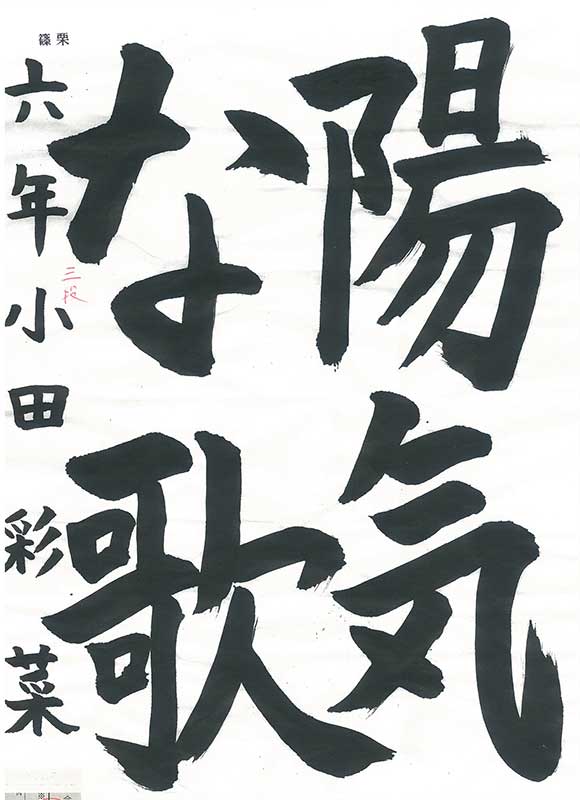 陽気
な歌
六年小田彩菜
三段
篠栗